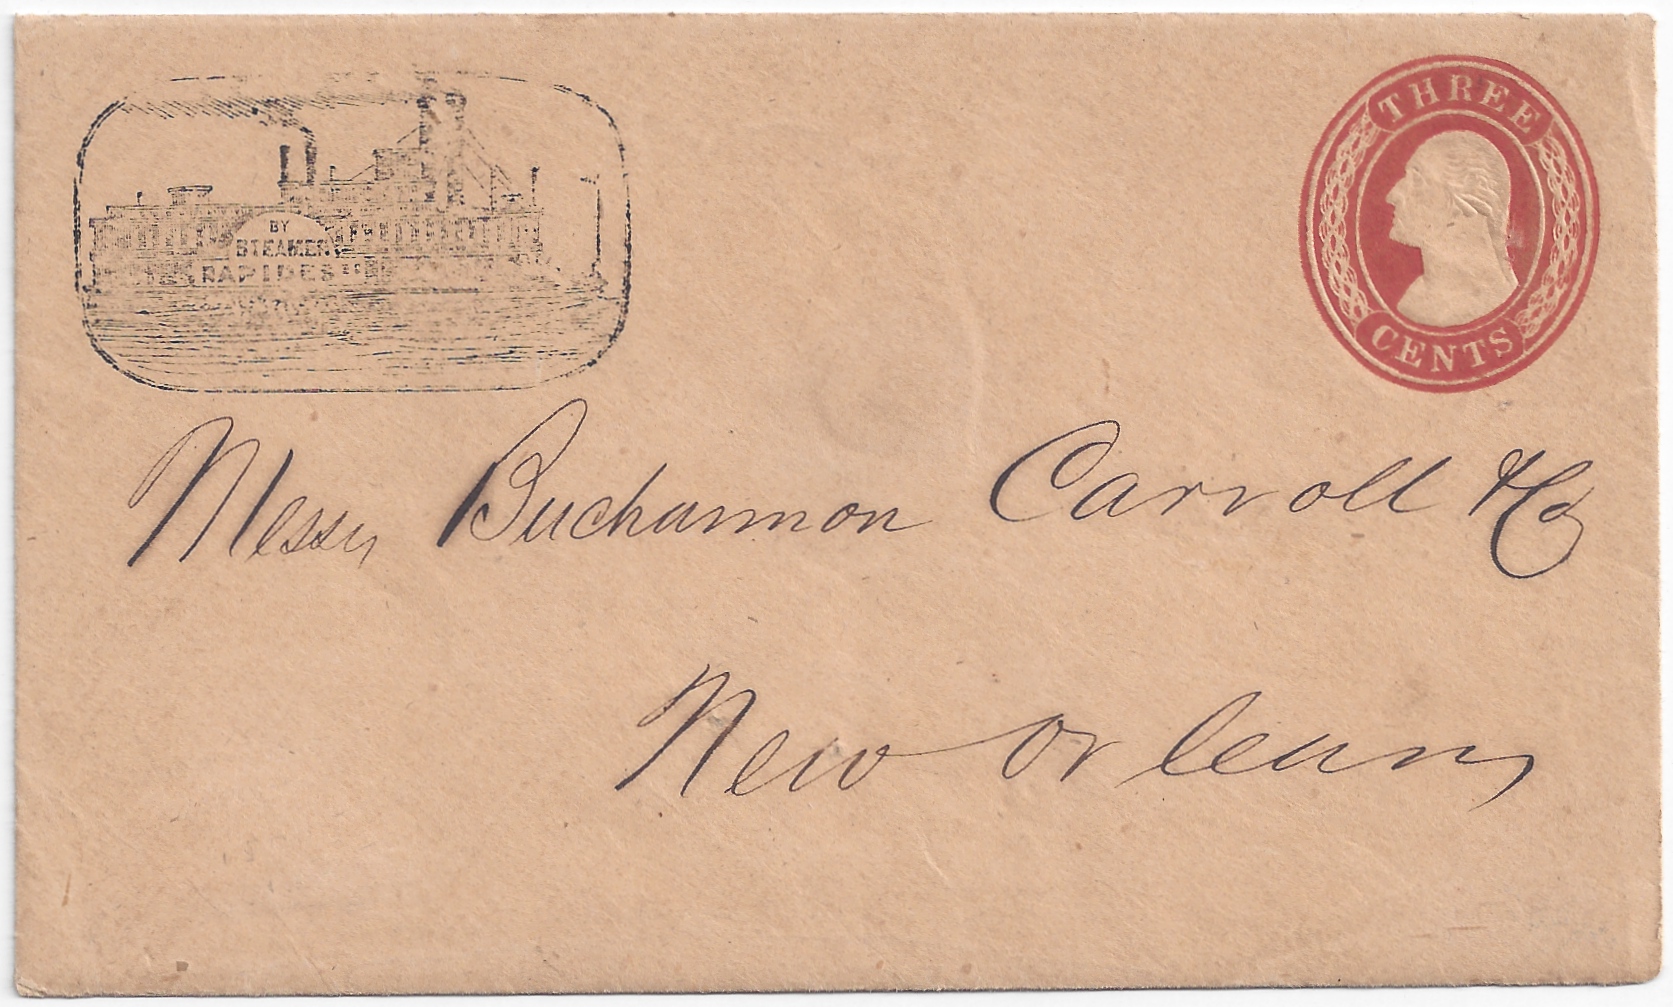 THREE
CENTS
BY
STEAMER
RAPIDES
Messrs Buchannon Carroll & Co
New Orleans